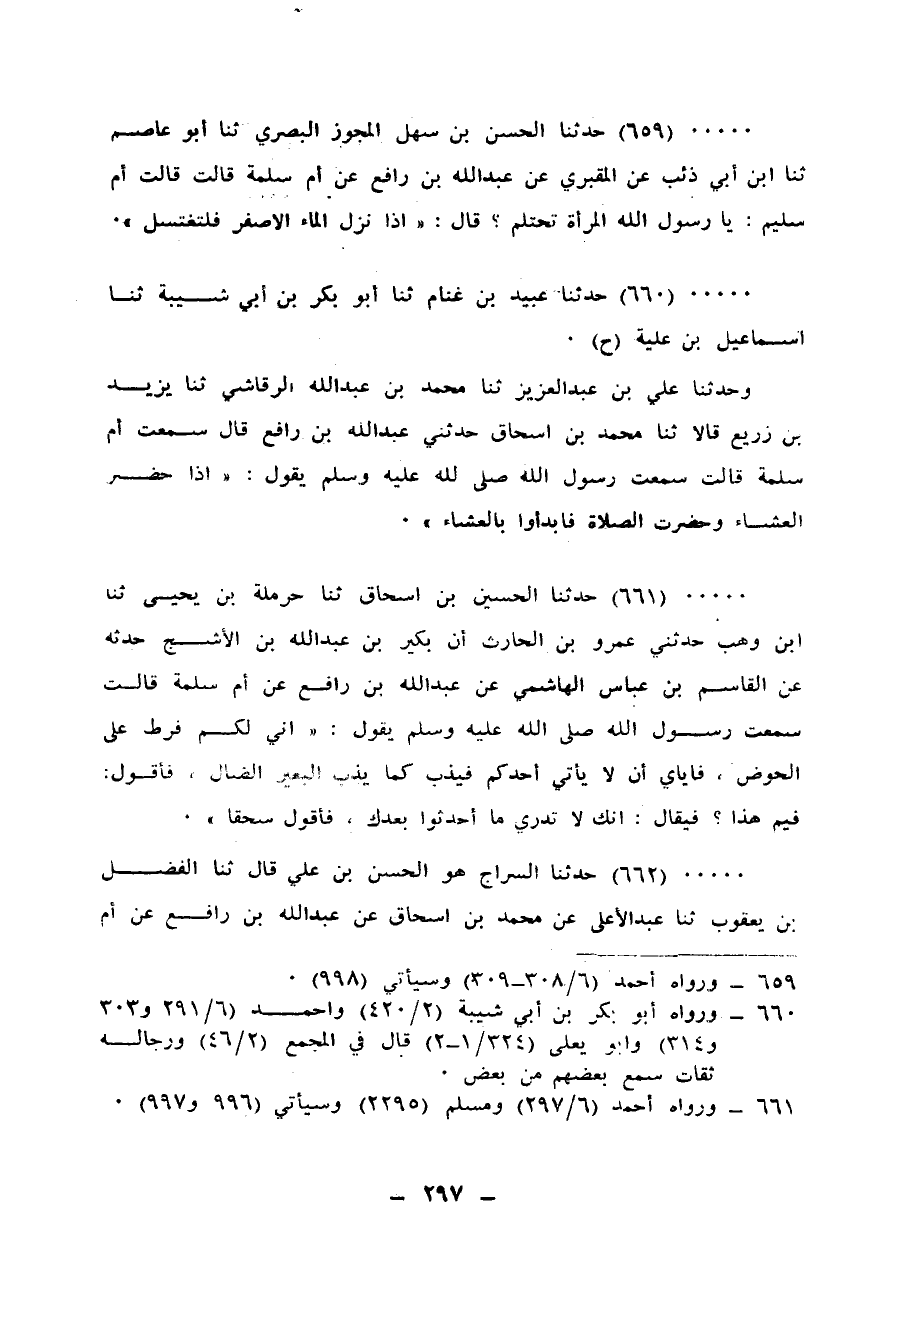 ..... (٦٥٩) حدثنا الحسن بن سهل المجوز البصري ثنا أبو عاصم
ثنا ابن أبي ذئب عن المقبري عن عبدالله بن رافع عن أم سلمة قالت قالت أم
سليم : يا رسول الله المرأة تحتلم ؟ قال : « اذا نزل الماء الاصفر فلتغتسل ».
..... (٦٦٠) حدثنا عبيد بن غنام ثنا أبو بكر بن أبي شيبة ثنا
اسماعيل بن علية (ح) .
وحدثنا علي بن عبدالعزيز ثنا محمد بن عبدالله الرقاشي ثنا يزيد
بن زريع قالا ثنا محمد بن اسحاق حدثني عبدالله بن رافع قال سمعت أم
سلمة قالت سمعت رسول الله صلى لله عليه وسلم يقول : « اذا حضر
العشاء وحضرت الصلاة فابدأوا بالعشاء » .
..... (٦٦١) حدثنا الحسين بن اسحاق ثنا حرملة بن يحيى ثنا
ابن وهب حدثني عمرو بن الحارث أن بكير بن عبدالله بن الأشج حدثه
عن القاسم بن عباس الهاشمي عن عبدالله بن رافع عن أم سلمة قالت
سمعت رسول الله صلى الله عليه وسلم يقول : « اني لكم فرط على
الحوض ، فاياي أن لا يأتي أحدكم فيذب كما يذب البعير الضال ، فأقول:
فيم هذا ؟ فيقال : انك لا تدري ما أحدثوا بعدك ، فأقول سحقا » .
..... (٦٦٢) حدثنا السراج هو الحسن بن علي قال ثنا الفضل
بن يعقوب ثنا عبدالأعلى عن محمد بن اسحاق عن عبدالله بن رافع عن أم
٦٥٩ ـ ورواه أحمد (٣٠٨/٦ـ٣٠٩) وسيأتي (٩٩٨) .
٦٦٠ ـ ورواه أبو بكر بن أبي شيبة (٤٢٠/٢) واحمد (٢٩١/٦ و٣٠٣
و٣١٤) وابو يعلى (١/٣٢٤ـ٢) قال في المجمع (٤٦/٢) ورجاله
ثقات سمع بعضهم من بعض .
٦٦١ ـ ورواه أحمد (٢٩٧/٦) ومسلم (٢٢٩٥) وسيأتي (٩٩٦ و٩٩٧) .
ـ ٢٩٧ ـ